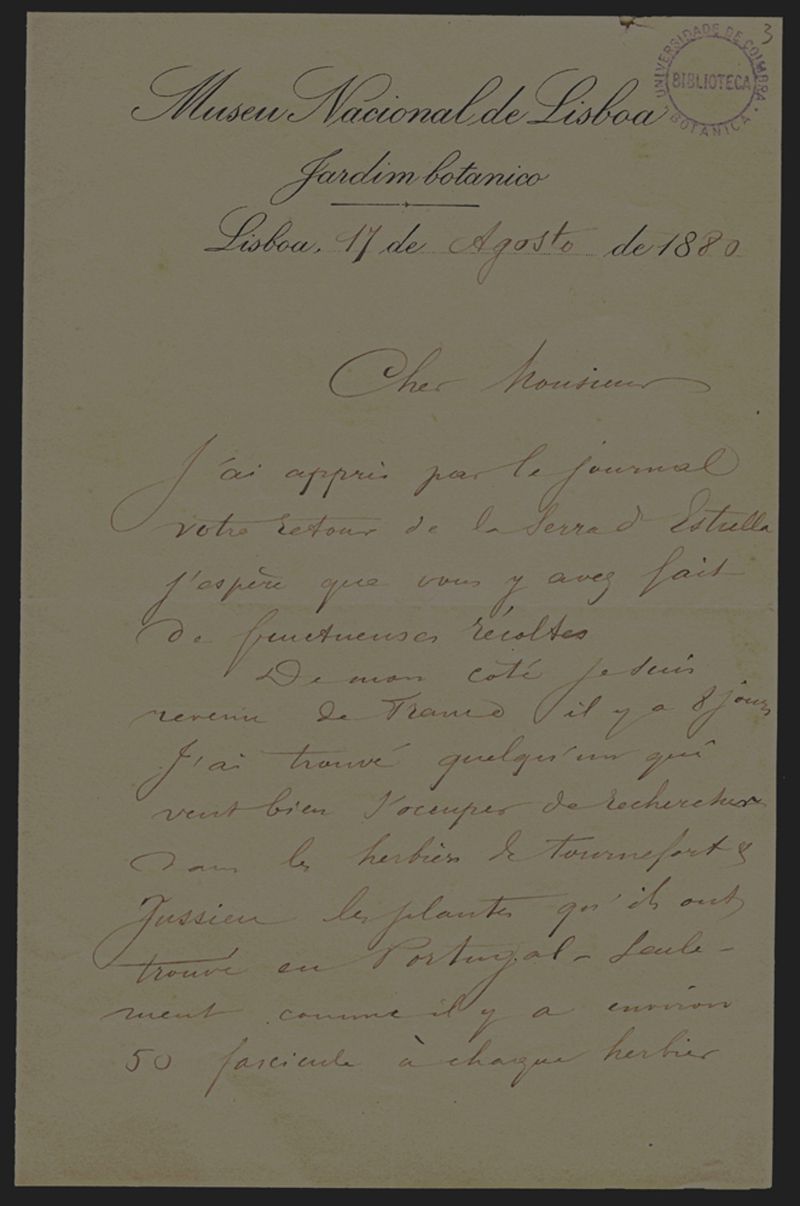 3
UNIVERSIDADE DE COIMBRA
BIBLIOTECA
BOTANICA
Museu Nacional de Lisboa
Jardim botanico
Lisboa, 17 de Agosto de 1880
Cher Monsieur
J'ai appris par le journal
votre retour de la Serra d'Estrella
j'espère que vous y avez fait
de fructueuses récoltes
De mon coté je suis
revenu de France il y a 8 jours
J'ai trouvé quelqu'un qui
veut bien s'occuper de rechercher
dans les herbiers de Tournefort &
Jussieu les plantes qu'ils ont
trouvé en Portugal - Seule-
ment comme il y a environ
50 fascicule à chaque herbier